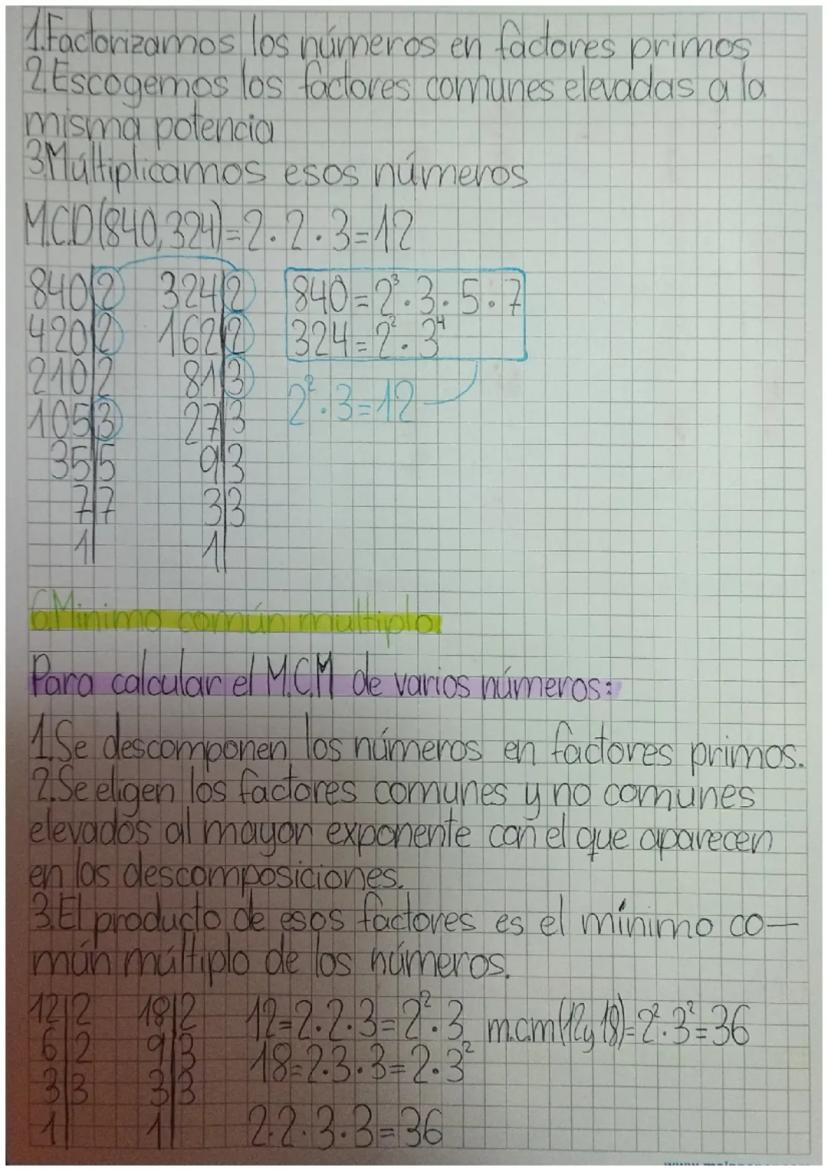 1.Factorizamos los números en factores primos
2.Escogemos los factores comunes elevadas a la
misma potencia
3.Múltiplicamos esos números
M.C.D(840,324)=2·2·3=12
840|2 324|2 840=2³·3·5·7
420|2 162|2 324=2²·3⁴
210|2 81|3
105|3 27|3 2²·3=12
35|5 9|3
7|7 3|3
1| 1|
6.Minimo común multiplo
Para calcular el M.C.M de varios números:
1.Se descomponen los números en factores primos.
2.Se eligen los factores comunes y no comunes
elevados al mayor exponente con el que aparecen
en las descomposiciones.
3.El producto de esos factores es el mínimo co-
mún múltiplo de los números.
12|2 18|2 12=2·2·3=2²·3 m.c.m(12y18)=2²·3²=36
6|2 9|3 18=2·3·3=2·3²
3|3 3|3
1| 1| 2·2·3·3=36